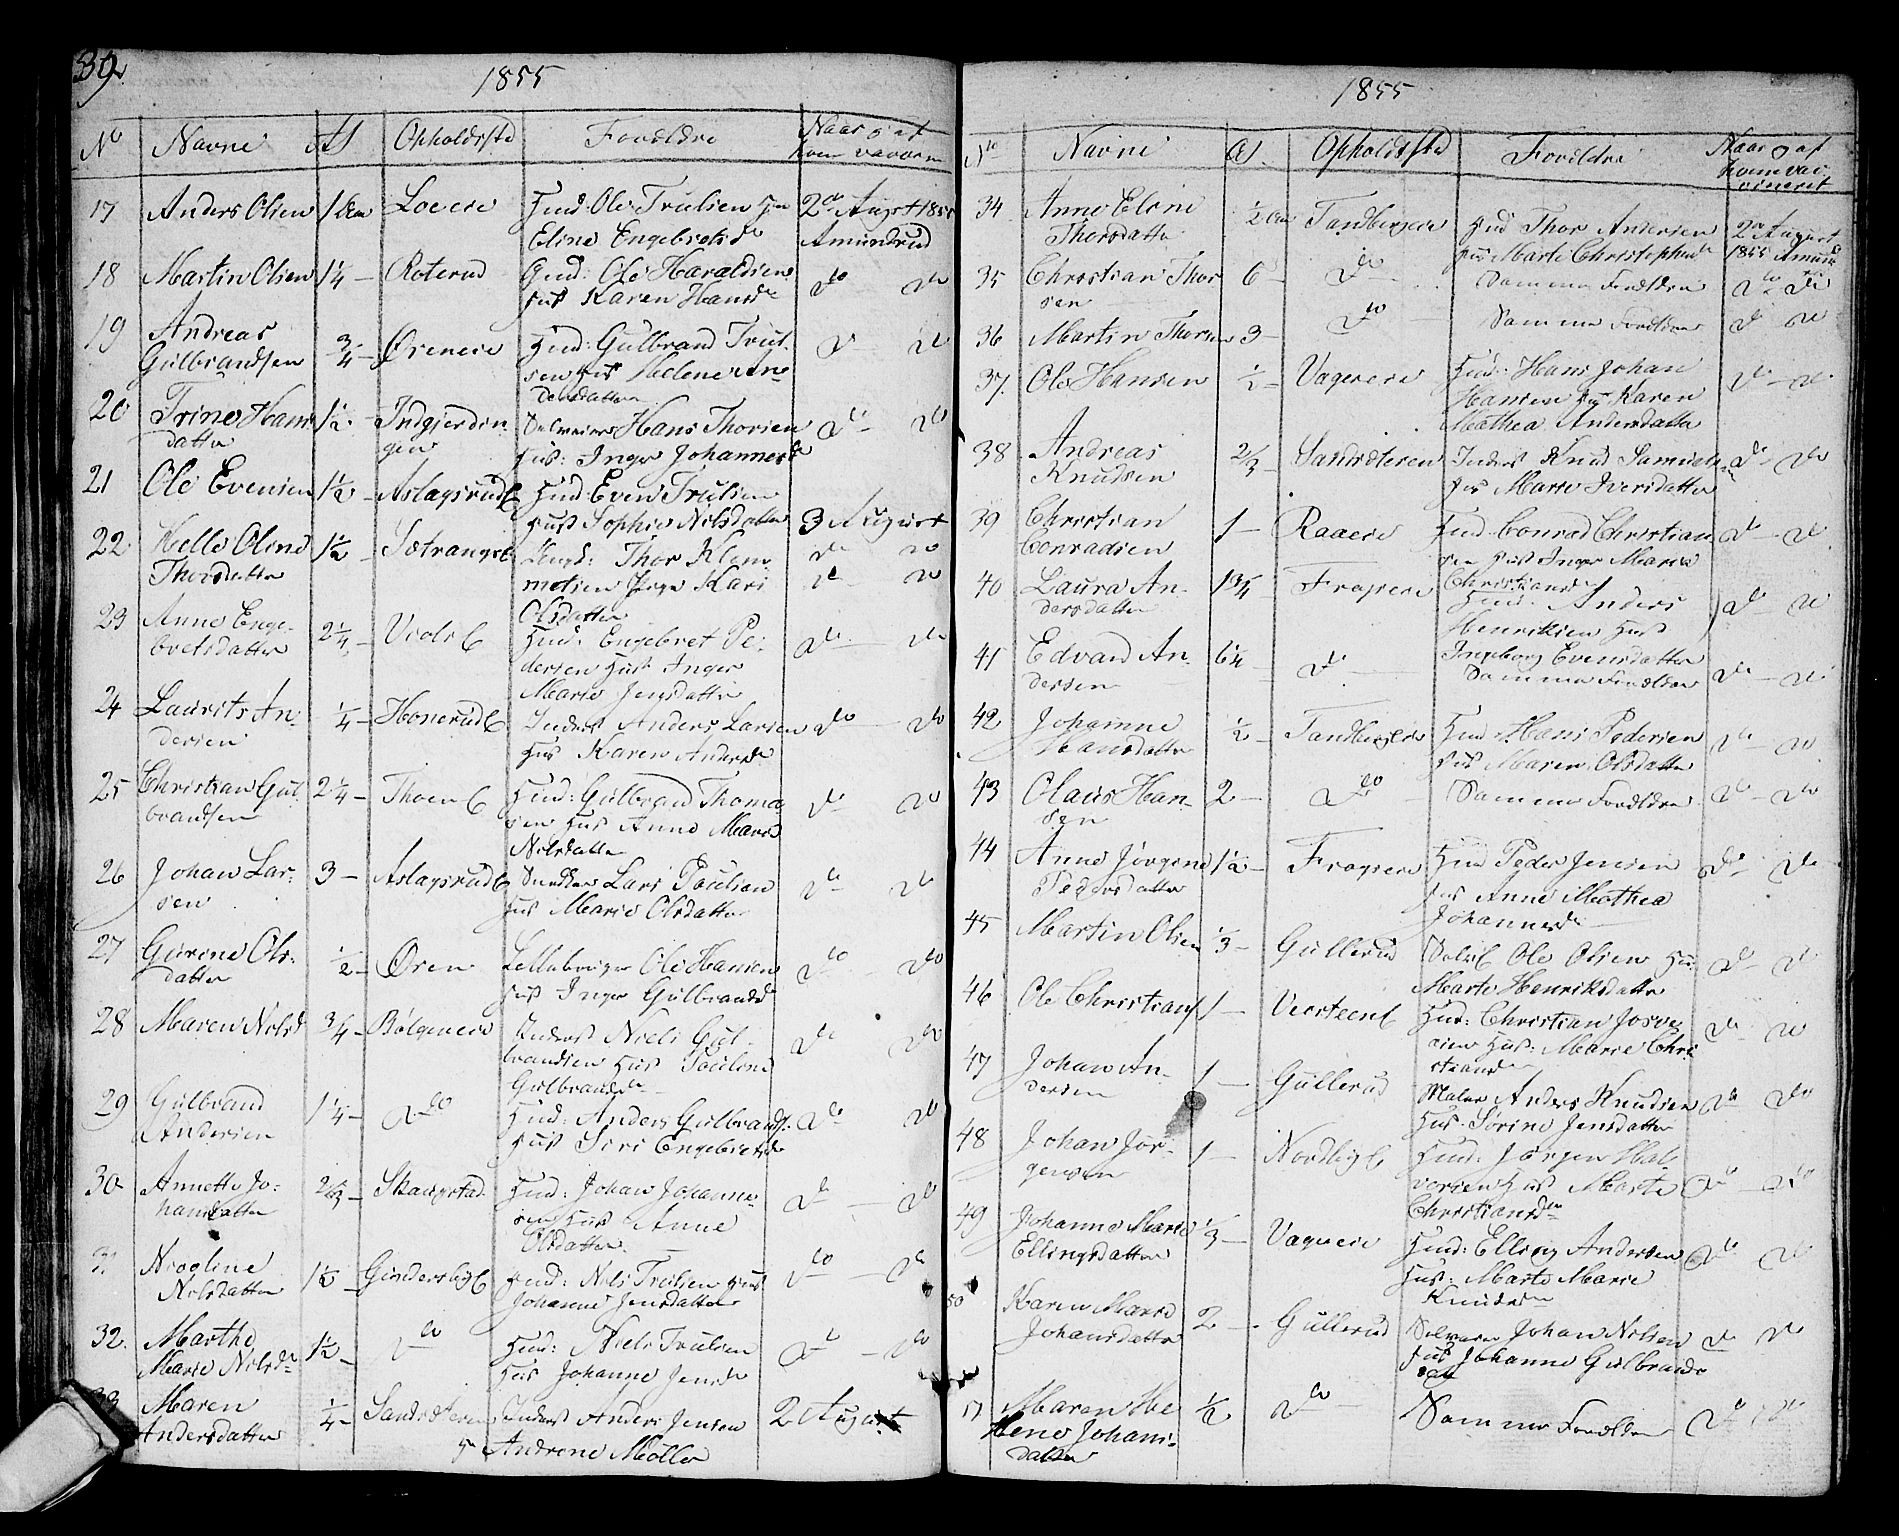 39
1855
No Navne Al Opholdsstd Forældre Naar og af
hvem vaccin
17 Anders Olsen 1 Loeeie Huusd: Ole Trulsen
Eline Engebretsd 2de Augst 1855
Amundrud
18 Martin Olsen 1¼ — Roterud Huusd: Ole Haraldsen
Hust Karen Hansdr do do
19 Andreas
Gulbrandsen ¾ — Øreneie Huusd: Gulbrand Trul-
sen Hust Helene An-
dersdatter do do
20 Trine Hans
datter 1½ - Indgjerdin
gen Hans Thorsen
Hust: Inger Johannesdr do do
21 Ole Evensen 1½ - Aslagsrud Huusd Even Trulsen
Hust Sophie Nilsdatter 3 August
22 Helle Oline
Thorsdatter 1½ - Sætrang Thor Klem
metsen Kari
Olsdatter do do
do do
23 Anne Enge-
bretsdatter 2¼ - Huusd: Engebret Pe-
dersen Hust Inger
Marie Jensdatter do do
24 Laurits An-
dersen ¼ - Honerud Inderst Anders Larsen
Hust Karen Andersdr do do
25 Christian Gul
brandsen 2¼ - Thoen Huusd: Gulbrand Thoma
sen Hust Anne Marie
Nilsdatter do do
26 Johan Lar-
sen 3 — Aslagsrud Lars Paulsen
Hust Marie Olsdatter do do
27 Gurine Ols-
datter ½ - Øren Ole Hansen
Hust Inger Gulbrandsd do do
28 Maren Nilsd ¾ - Bølgeneie Inderst Niels Gul-
brandsen Hust Pauline
Gulbrandsdr do do
29 Gulbrand
Andersen 1¼ - do Huusd: Anders Gulbrands:
Hust Siri Engebretsd do do
30 Annette Jo-
hansdatter 2/3 - Skaugstad Huusd: Johan Johanne-
sen Hust Anne
Olsdatter do — do
31 Nicoline
Nilsdatter 1½ - Huusd: Nils Trulsen Hust
Johanne Jensdatter do — do
32 Marthe
Marie Nilsdr 1½ - do Huusd: Niels Trulsen
Hust Johanne Jensdr do — do
33 Maren
Andersdatter ¼ - Sandsæteren Inderst Anders Jensen
Andrene Møller 2 August
1855
No Navne Al. Opholdsstd Forældre Naar og af
hvem vac-
cineret
34 Anne Eline
Thorsdatter ½ Tandbergeie Huusd Thor Andersen
Hust Marte Christophersdr 2den August
1855 Amund
35 Christian Thor
sen 6 - do Samme Forældre do do
36 Martin Thorsen 3 - do Samme Forældre do do
37. Ole Hansen ½ - Vageneie Huusd: Hans Johan
Hansen Hust Karen
Mathea Andersdatter do - do
38 Andreas
Knudsen 2/3 - Sandsæteren Inderst Knud Samuels
Hust Marte Iversdatter do - do
39 Christian
Conradsen 1 - Raaeie Huusd Conrad Christian
sen Hust Inger Marie
Christiansdr do - do
40 Laura An-
dersdatter 1¾ - Frogeeie Huusd: Anders
Henriksen Hust
Ingeborg Evensdatter do do
41 Edvard An-
dersen 6¼ - do Samme Forældre do - do
42 Johanne
Hansdatter ½ - Tandbergeie Huusd Hans Pedersen
Hust Maren Olsdatter do - do
43 Olaus Han-
sen 2 — do Samme Forældre do - do
44 Anne Jørgine
Pedersdatter 1½ - Frogeeie Huusd Peder Jensen
Hust Anne Mathea
Johannesdr do - do
45 Martin Olsen 1/3 - Gullerud Ole Olsen Hust
Marte Henriksdatter do - do
46 Ole Christians 1 - Versteen Huusd: Christian
sen Hust: Marie Chri
stiansdr do - do
47 Johan An-
dersen 1 — Gullerud Maler Anders Knudsen
Hust. Sørine Jensdatter do - do
48 Johan Jør-
gensen 1 - Nordbye Huusd: Jørgen Hal-
vorsen Hust Marte
Christiansdr do - do
49 Johanne Marie
Ellingsdatter 1/3 - Vageneie Huusd: Elling Andersen
Hust: Marte Marie
Knudsdr do do
50 Karen Marie
Johansdatter 2 - Gullerud Johan Nilsen
Hust Johanne Gulbrands
dat do do
51 Maren He
lene Johans-
datter ½ do — Samme Forældre do do